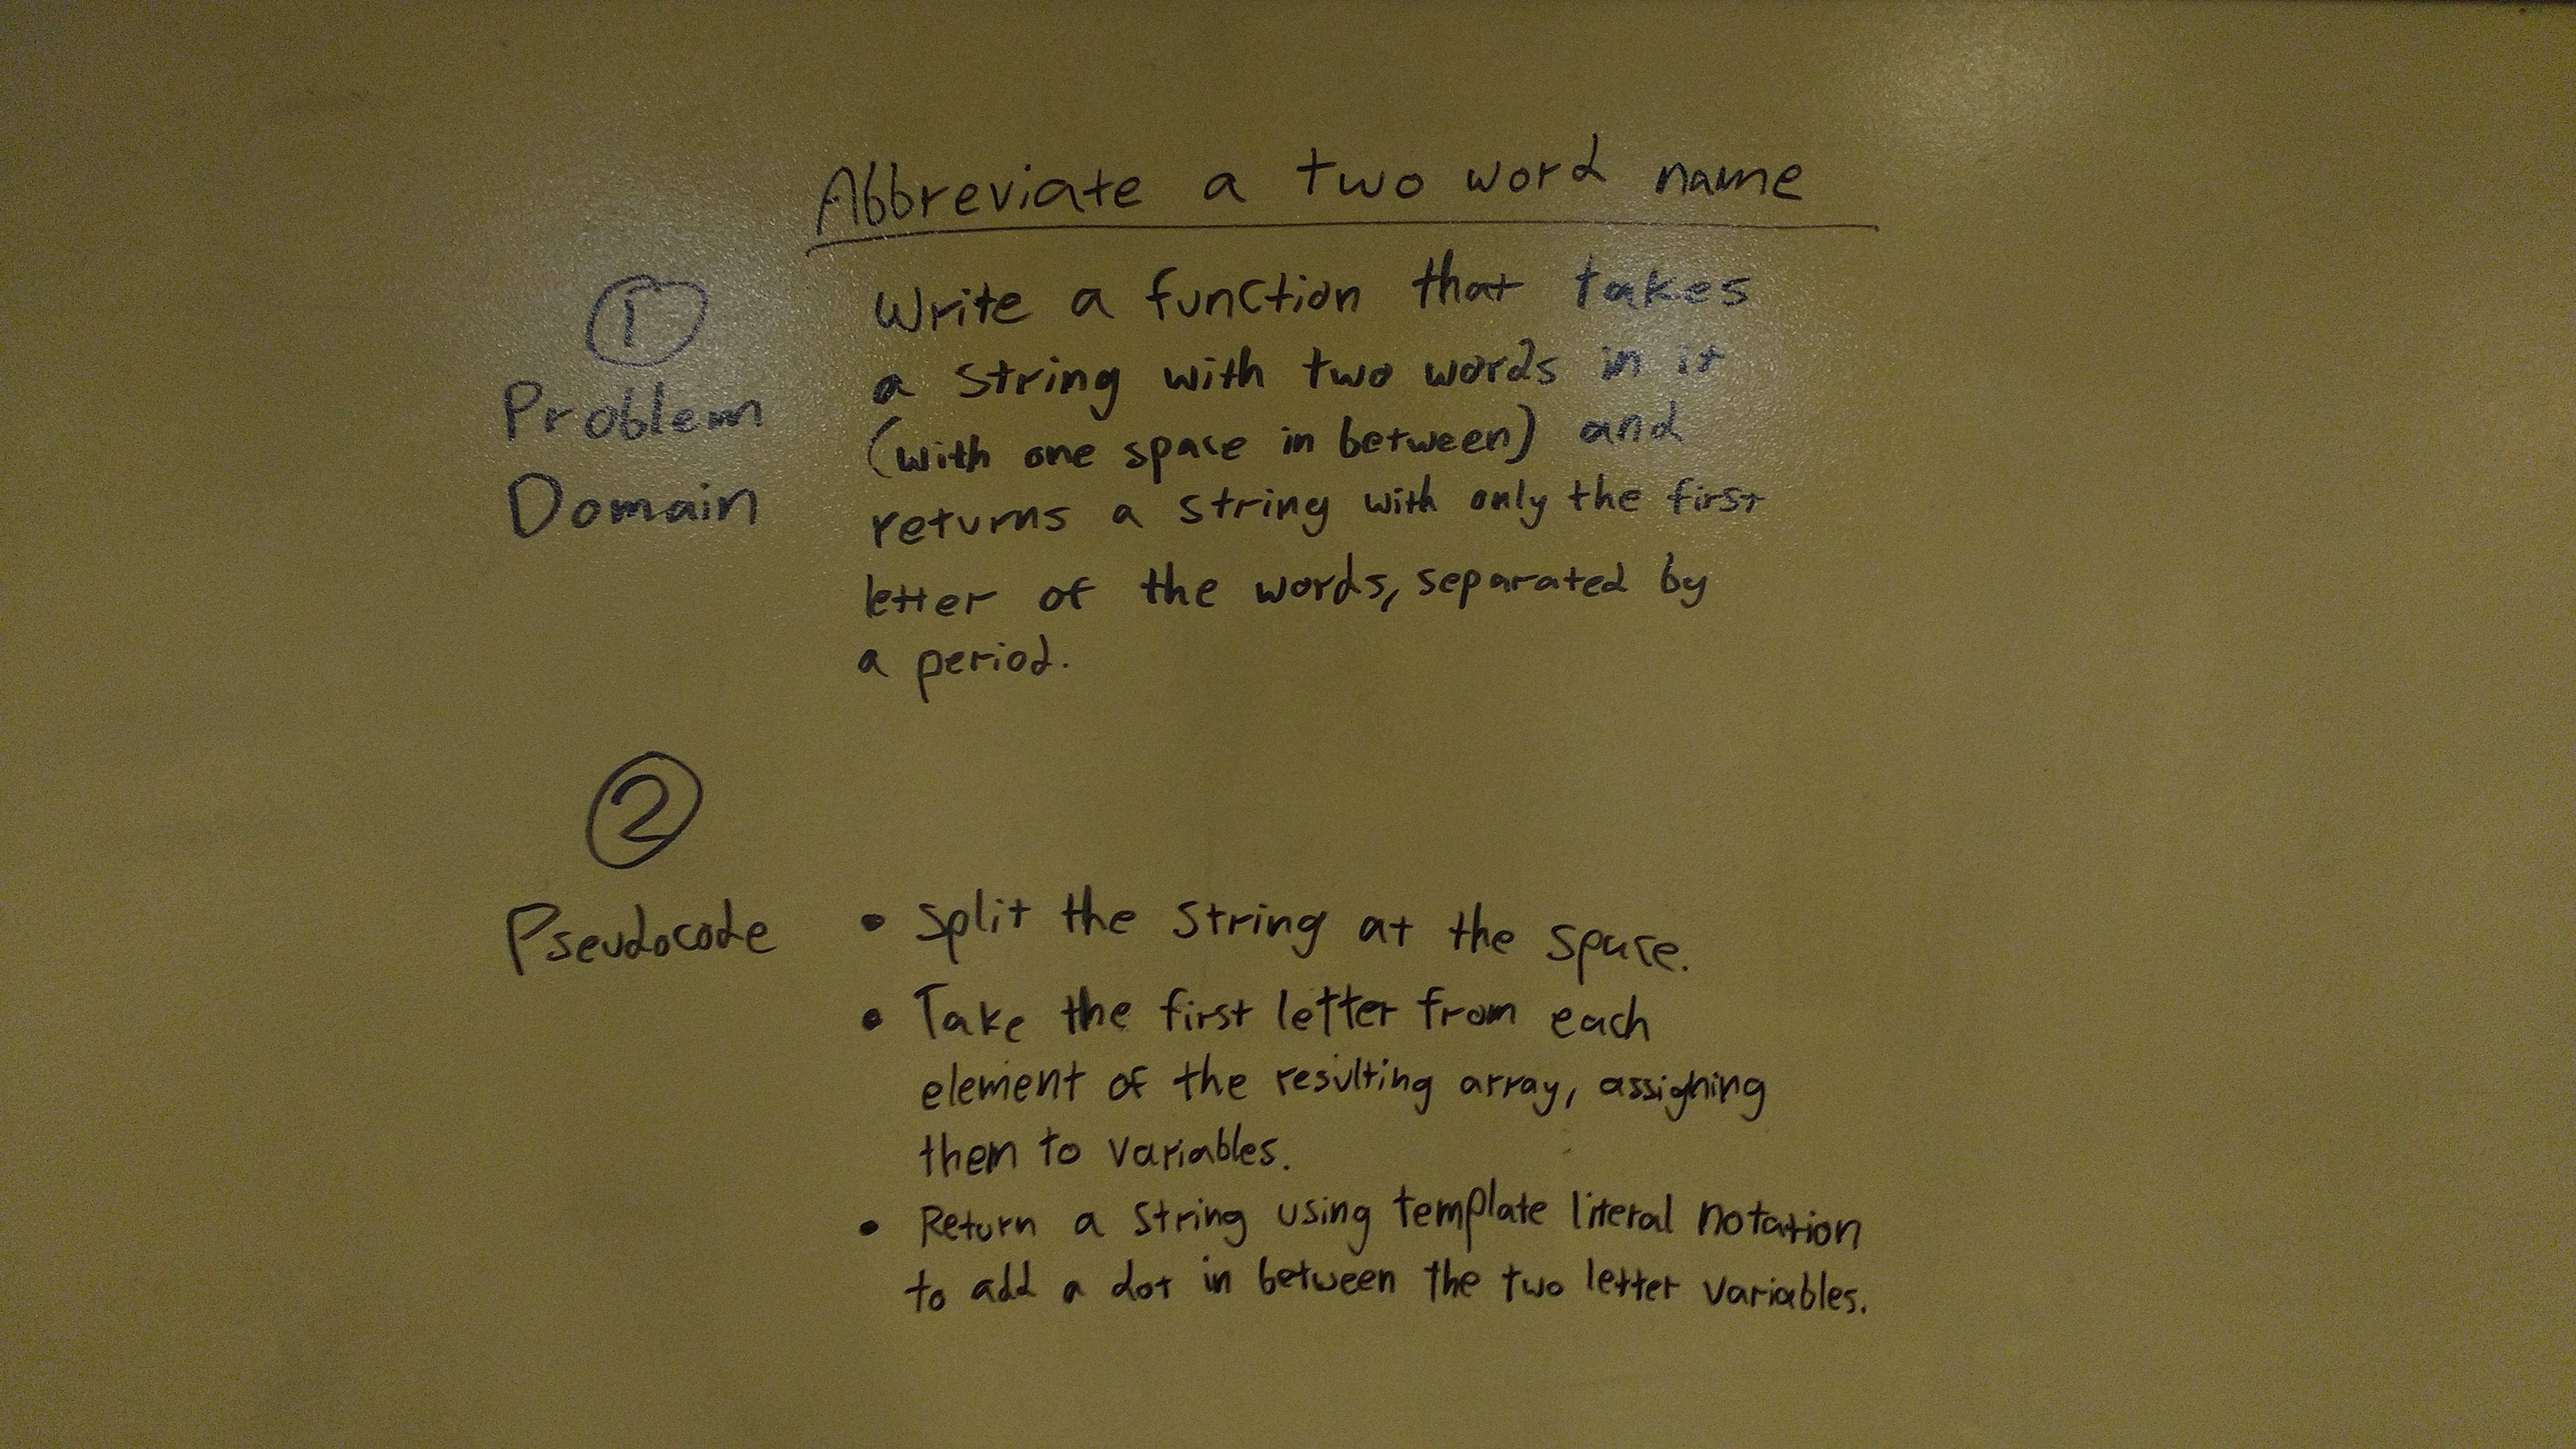 Abbreviate a two word name
①
Problem
Domain
Write a function that takes
a string with two words in it
(with one space in between) and
returns a string with only the first
letter of the words, separated by
a period.
②
Pseudocode
• Split the string at the space.
• Take the first letter from each
element of the resulting array, assigning
them to variables.
• Return a string using template literal notation
to add a dot in between the two letter variables.